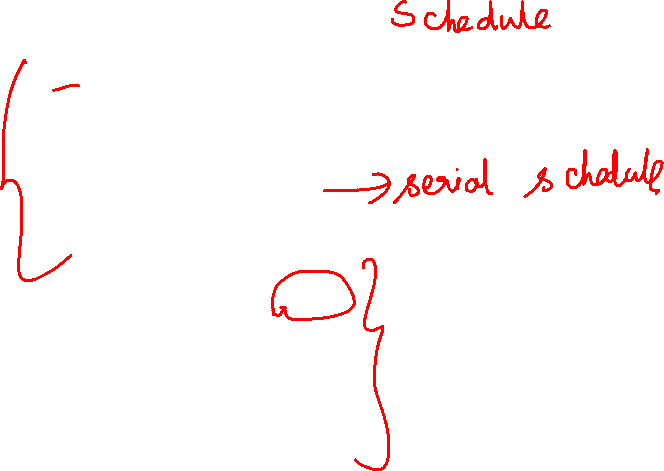 Schedule
→ serial schedule